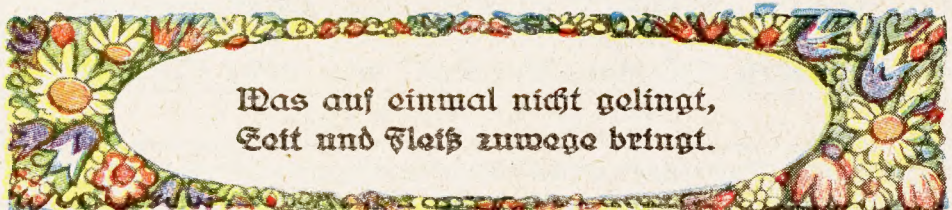 Was auf einmal nicht gelingt,
Zeit und Fleiß zuwege bringt.